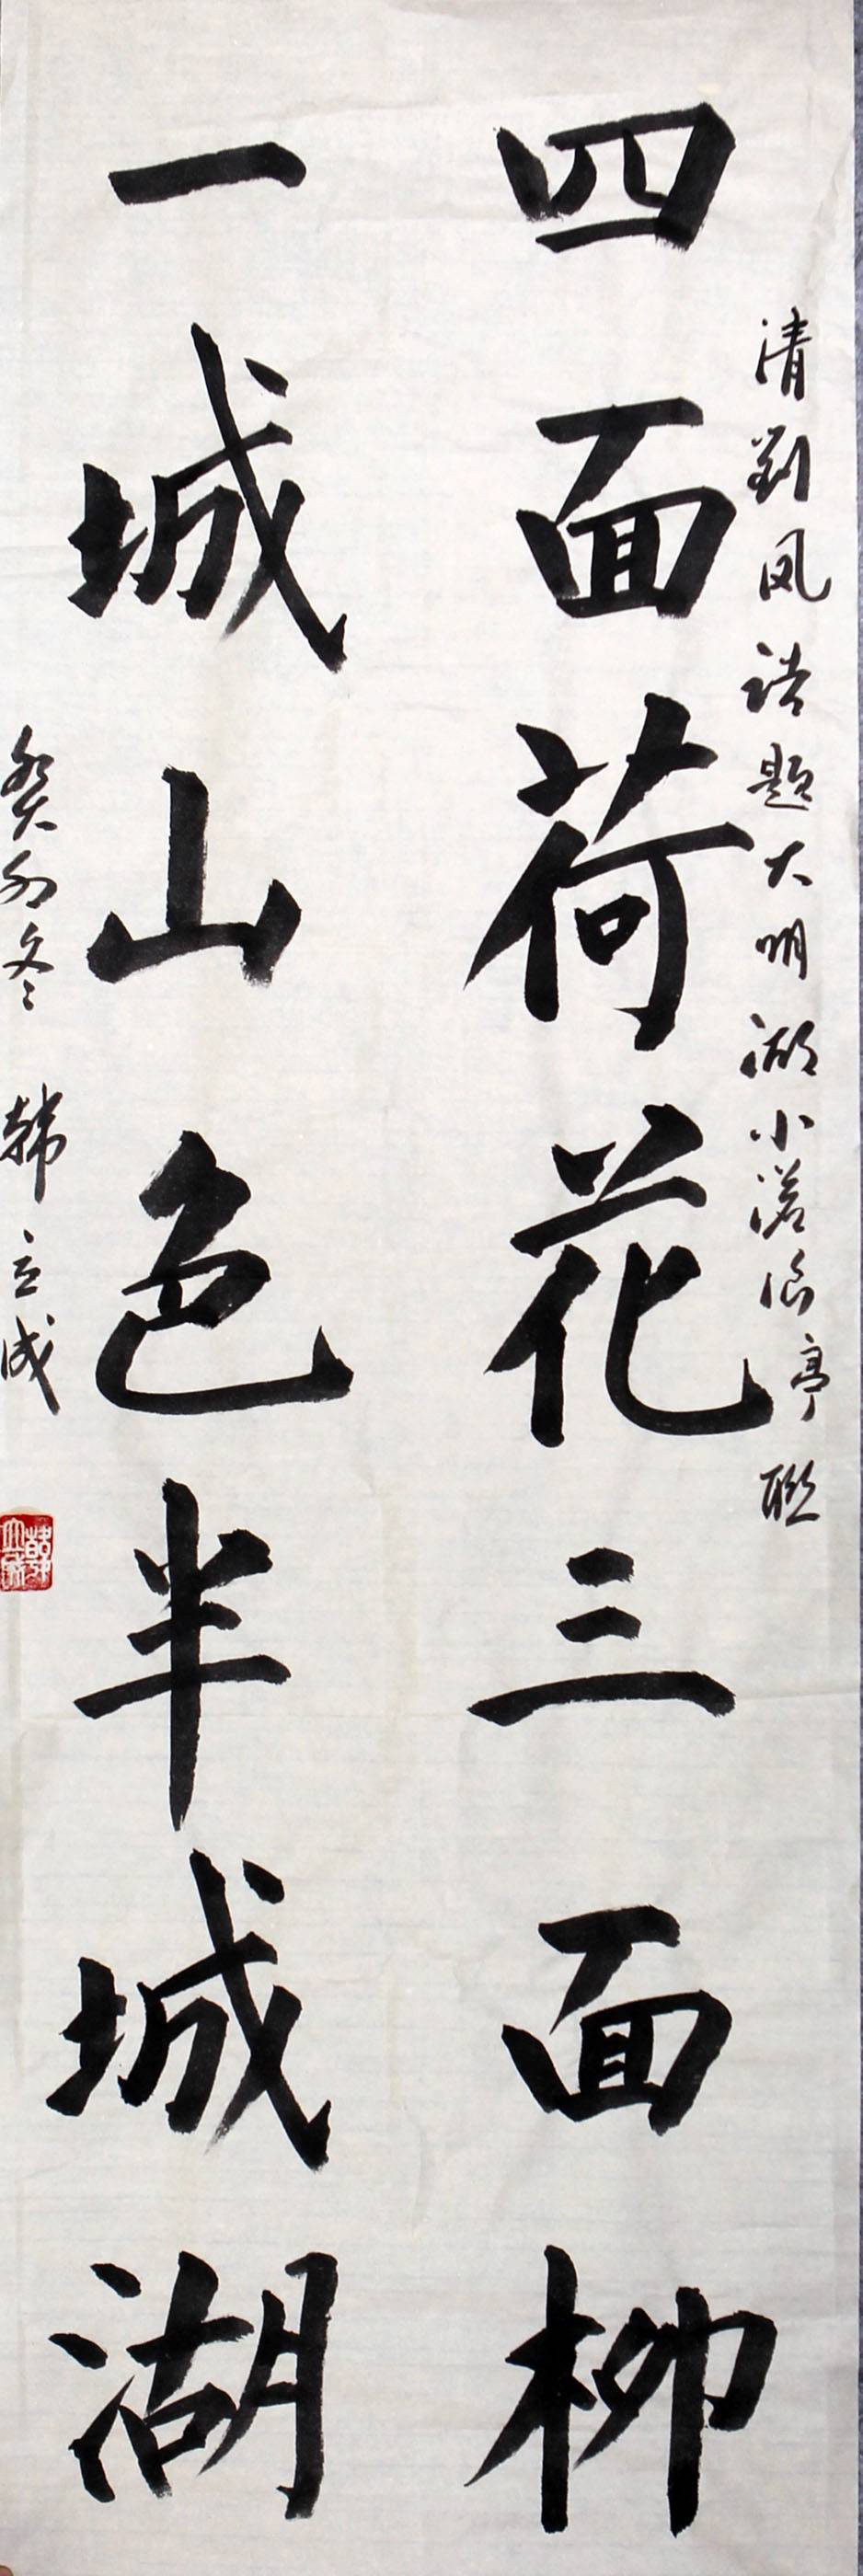 清刘凤诰题大明湖小沧浪亭联
四面荷花三面柳
一城山色半城湖
癸卯冬 韩立成